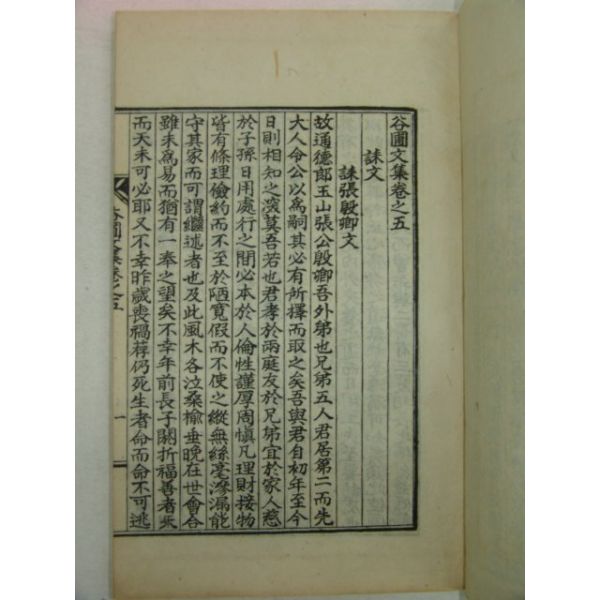 谷圃文集卷之五
誄文
誄張殷卿文
故通德郎玉山張公殷卿吾外弟也兄第五人君居第二而先
大人令公以爲嗣其必有所擇而取之矣吾與君自初年至今
日則相知之深莫吾若也君孝於兩庭友於兄弟宜於家人慈
於子孫日用處行之間必本於人倫性謹厚周愼凡理財接物
皆有條理儉約而不至於陋寬假而不使之縱無絲毫滲漏能
守其家而可謂繼述者也及此風木各泣桑楡垂晩在世會合
雖未爲易而猶有一奉之望矣不幸年前長子闕折福善者天
而天未可必耶又不幸昨歲喪禍荐仍死生者命而命不可逃
谷圃文集卷之五
一